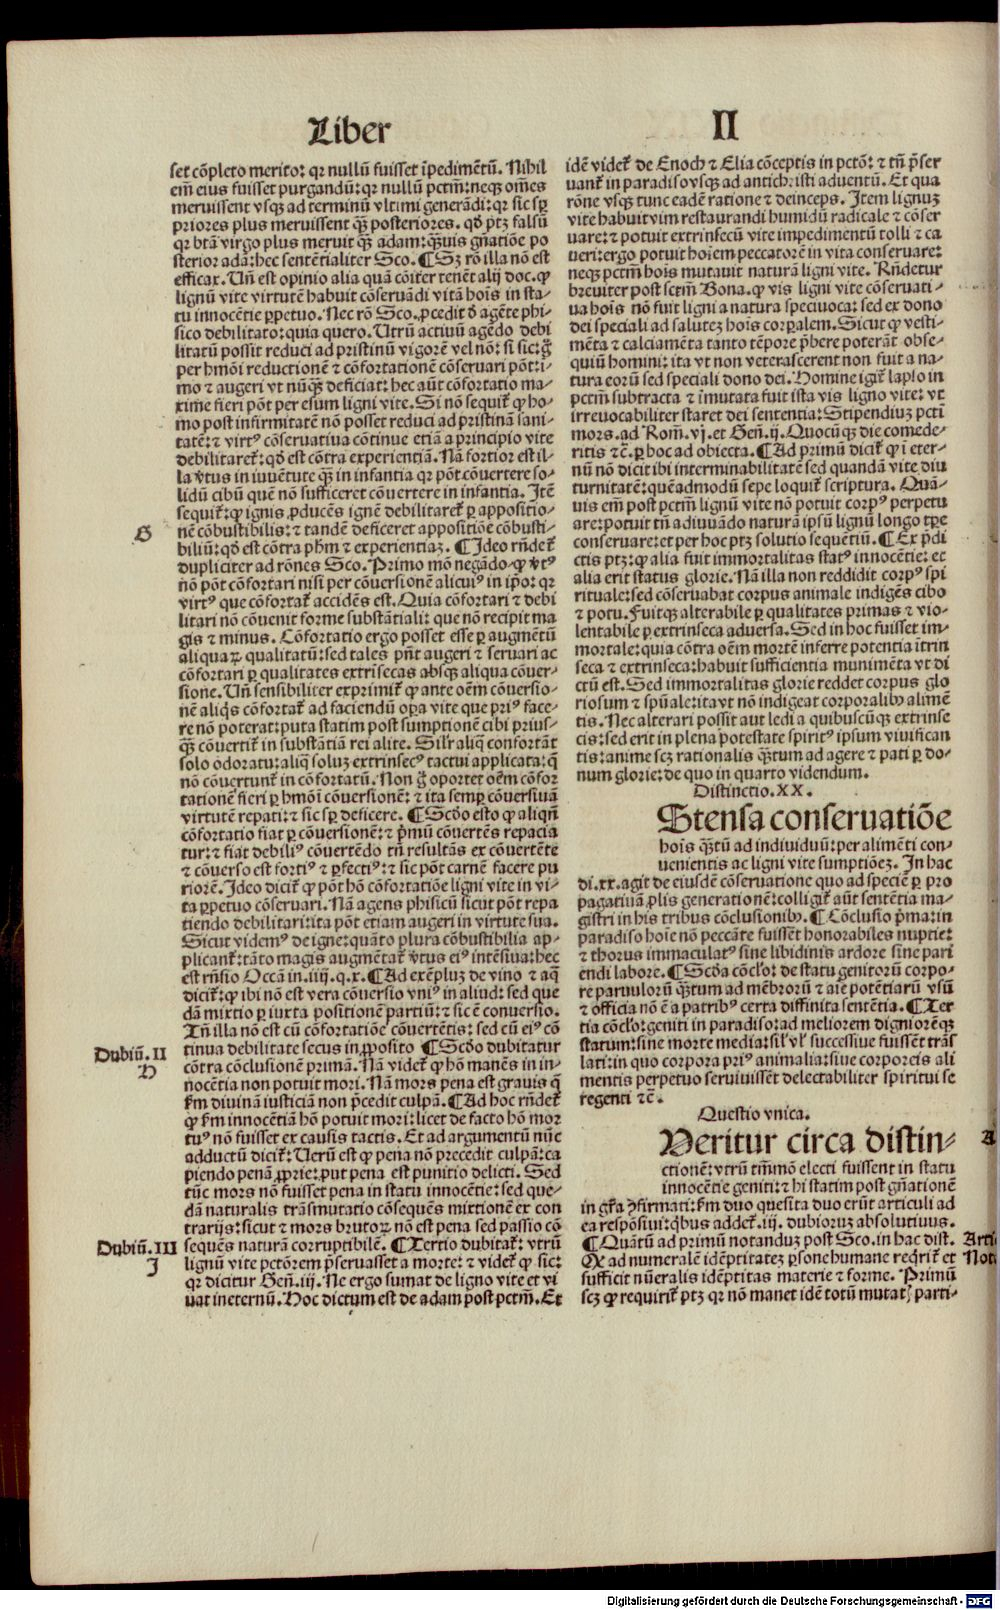 Liber
II
set cōpleto merito: qr nullū fuisset īpedimētū. Nihil
em̄ eius fuisset purgandū: qr nullū pctm̄: neqꝫ om̄es
meruissent vsqꝫ ad terminū vltimi generādi: qr sic sꝑ
priores plus meruissent qꝫ̄ posteriores. qd̓ ptꝫ falsū
qr btā virgo plus meruit qꝫ̄ adam: qꝫ̄uis gn̄atiōe po
sterior adā: hec sentētialiter Sco. ¶ Sꝫ rō illa nō est
efficax. Un̄ est opinio alia quā cōiter tenēt alij doc. ꝙ
lignū vite virtutē habuit cōseruādi vitā hoīs in sta-
tu innocētie ꝑpetuo. Nec rō Sco. ꝓcedit d̓ agēte phi-
sico debilitato: quia quero. Utrū actiuū agēdo debi
litatū possit reduci ad pristinū vigorē vel nō: si sic: g̊
per hmōi reductionē ⁊ cōfortationē cōseruari pōt: i-
mo ⁊ augeri vt nūqꝫ̄ deficiat: hec aūt cōfortatio ma-
xime fieri pōt per esum ligni vite. Si nō sequit̄ ꝙ ho-
mo post infirmitatē nō posset reduci ad pristinā sani-
tatē: ⁊ virtꝰ cōseruatiua cōtinue etiā a principio vite
debilitaret̄: qd̓ est cōtra experientiā. Nā fortior est il-
la v̓tus in iuuētute qꝫ̄ in infantia qr pōt cōuertere so-
lidū cibū quē nō sufficeret cōuertere in infantia. Itē
sequit̄: ꝙ ignis ꝓducēs ignē debilitaret̄ ꝑ appositio-
G
nē cōbustibilis: ⁊ tandē deficeret appositiōe cōbusti-
biliū: qd̓ est cōtra phm̄ ⁊ experientiaꝫ. ¶ Ideo rn̄det̄
dupliciter ad rōnes Sco. Primo mō negādo ꝙ v̓tꝰ
nō pōt cōfortari nisi per cōuersionē alicuiꝰ in ip̄o: qr
virtꝰ que cōfortat̄ accidēs est. Quia cōfortari ⁊ debi
litari nō cōuenit forme substātiali: que nō recipit ma
gis ⁊ minus. Cōfortatio ergo posset esse ꝑ augmētū
aliquaꝝ qualitatū: sed tales pn̄t augeri ⁊ seruari ac
cōfortari ꝑ qualitates extrīsecas absqꝫ aliqua cōuer-
sione. Un̄ sensibiliter exprimit̄ ꝙ ante oēm cōuersio-
nē aliq̊s cōfortat̄ ad faciendū oꝑa vite que priꝰ face-
re nō poterat: puta statim post sumptionē cibi prius-
qꝫ̄ cōuertit̄ in substātiā rei alite. Silr̄ aliq̄ confortāt
solo odoratu: aliq̄ soluꝫ extrinsecꝰ tactui applicata: q̄
nō cōuertunt̄ in cōfortatū. Non g̊ oportet oēm cōfor
tationē fieri ꝑ hmōi cōuersionē: ⁊ ita semꝑ cōuersiuā
virtutē repati: ⁊ sic sꝑ deficere. ¶ Scd̓o esto ꝙ aliqn̄
cōfortatio fiat ꝑ cōuersionē: ⁊ p̓mū cōuertēs repacia
tur: ⁊ fiat debiliꝰ cōuertēdo tn̄ resultās ex cōuertēte
⁊ cōuerso est fortiꝰ ⁊ ꝑfectiꝰ: ⁊ sic pōt carnē facere pu
riorē. Ideo dicit̄ ꝙ pōt hō cōfortatiōe ligni vite in vi-
ta ꝑpetuo cōseruari. Nā agens phisicū sicut pōt repa
tiendo debilitari: ita pōt etiam augeri in virtute sua.
Sicut videmꝰ de igne: quāto plura cōbustibilia ap-
plicant̄: tāto magis augmētat̄ v̓tus eiꝰ intēsiua: hec
est rn̄sio Occā in .iiij. q. x. ¶ Ad exēpluꝫ de vino ⁊ aq̄
dicit̄: ꝙ ibi nō est vera cōuersio vniꝰ in aliud: sed que
dā mixtio ꝑ iuxta positionē partiū: ⁊ sic ē conuersio.
Tn̄ illa nō est cū cōfortatiōe cōuertētis: sed cū eiꝰ cō
Dubiū. II
H
tinua debilitate secus in ꝓposito ¶ Scd̓o dubitatur
cōtra cōclusionē primā. Nā videt̄ ꝙ hō manēs in in-
nocētia non potuit mori. Nā mors pena est grauis q̄
ẜm diuinā iusticiā non p̄cedit culpā. ¶ Ad hoc rn̄det̄
ꝙ ẜm innocētiā hō potuit mori: licet de facto hō mor
tuꝰ nō fuisset ex causis tactis. Et ad argumentū nūc
adductū dicit̄: Uerū est ꝙ pena nō precedit culpā: ca
piendo penā ꝓprie: put pena est punitio delicti. Sed
tūc mors nō fuisset pena in statu innocētie: sed que-
dā naturalis trāsmutatio cōsequēs mixtionē ex con
trarijs: sicut ⁊ mors brutoꝝ nō est pena sed passio cō
Dubiū. III
I
sequēs naturā corruptibilē. ¶ Tertio dubitat̄: vtrū
lignū vite pctōrem p̄seruasset a morte: ⁊ videt̄ ꝙ sic:
qr dicitur Gen̄. iij. Ne ergo sumat de ligno vite et vi
uat ineternū. Hoc dictum est de adam post pctm̄. Et
idē videt̄ de Enoch ⁊ Elia cōceptis in pctō: ⁊ tn̄ p̄ser
uant̄ in paradiso vsqꝫ ad antichristi aduentū. Et qua
rōne vsqꝫ tunc eadē ratione ⁊ deinceps. Item lignuꝫ
vite habuit vim restaurandi humidū radicale ⁊ cōser
uare: ⁊ potuit extrinsecū vite impedimentū tolli ⁊ ca
ueri: ergo potuit hoīem peccatorē in vita conseruare:
neqꝫ pctm̄ hoīs mutauit naturā ligni vite. Rn̄detur
breuiter post sctm̄ Bona. ꝙ vis ligni vite cōseruati-
ua hoīs nō fuit ligni a natura speciuoca: sed ex dono
dei speciali ad salutez hoīs corꝑalem. Sicut ꝙ vesti-
mēta ⁊ calciamēta tanto tēpore p̄bere poterāt obse-
quiū homini: ita vt non veterascerent non fuit a na-
tura eorū sed speciali dono dei. Homine igit̄ lapso in
pctm̄ subtracta ⁊ īmutata fuit ista vis ligno vite: vt
irreuocabiliter staret dei sententia: Stipendiuꝫ pctī
mors. ad Rom̄. vj. et Gen̄. ij. Quocūqꝫ die comede-
ritis ⁊c̄. ꝑ hoc ad obiecta. ¶ Ad primū dicit̄ ꝙ ī eter-
nū nō dicit ibi interminabilitatē sed quandā vite diu
turnitatē: quēadmodū sepe loquit̄ scriptura. Quā-
uis em̄ post pctm̄ lignū vite nō potuit corpꝰ perpetu
are: potuit tn̄ adiuuādo naturā ipsū lignū longo tp̄re
conseruare: et per hoc ptꝫ solutio sequētiū. ¶ Ex p̄di
ctis ptꝫ: ꝙ alia fuit immortalitas statꝰ innocētie: et
alia erit status glorie. Nā illa non reddidit corpꝰ spi
rituale: sed cōseruabat corpus animale indigēs cibo
⁊ potu. Fuitqꝫ alterabile ꝑ qualitates primas ⁊ vio-
lentabile ꝑ extrinseca aduersa. Sed in hoc fuisset im-
mortale: quia cōtra oēm mortē inferre potentia ītrin
seca ⁊ extrinseca: habuit sufficientia munimēta vt di
ctū est. Sed immortalitas glorie reddet corpus glo
riosum ⁊ spūale: ita vt nō indigeat corporalibꝫ alimē
tis. Nec alterari possit aut ledi a quibuscūqꝫ extrinse
cis: sed erit in plena potestate spiritꝰ ipsum viuifican
tis: anime scꝫ rationalis qꝫ̄tum ad agere ⁊ pati ꝑ do-
num glorie: de quo in quarto videndum.
Distinctio. XX.
Stensa conseruatiōe
hoīs qꝫ̄tū ad indiuiduū: per alimēti con-
uenientis ac ligni vite sumptiōeꝫ. In hac
di. xx. agit de eiusdē cōseruatione quo ad speciē ꝑ pro
pagatiuā ꝓlis generationē: colligit̄ aūt sentētia ma-
gistri in his tribus cōclusionibꝫ. ¶ Cōclusio p̓ma: in
paradiso hoīe nō peccāte fuissēt honorabiles nuptie:
⁊ thorus immaculatꝰ sine libidinis ardore sine pari
endi labore. ¶ Scd̓a cōclō: de statu genitorū corpo-
re paruulorū qꝫ̄tum ad mēbrorū ⁊ aīe potētiarū vsū
⁊ officia nō ē a patribꝰ certa diffinita sentētia. ¶ Ter
tia cōclō: geniti in paradiso: ad meliorem dignioremqꝫ
statum: sine morte media: sil̓ vl̓ successiue fuissēt trās
lati: in quo corpora priꝰ animalia: siue corporeis ali
mentis perpetuo seruiuissēt delectabiliter spiritui se
regenti ⁊c̄.
Questio vnica.
Veritur circa distin-
A
ctionē: vtrū tm̄mō electi fuissent in statu
innocētie geniti: ⁊ hi statim post gn̄ationē
in gr̄a ꝯfirmati: ẜm duo quesita duo erūt articuli ad
ea respōsiui: q̊bus addet̄ .iij. dubioruꝫ absolutiuus.
¶ Quātū ad primū notanduꝫ post Sco. in hac dist.
Arti
Qꝫ ad numeralē idēptitateꝫ ꝑsone humane req̊rit̄ et
Nota
sufficit nūeralis idēptitas materie ⁊ forme. Primū
scꝫ ꝙ requirit̄ ptꝫ qr nō manet idē totū mutatꝭ parti-
Digitalisierung gefördert durch die Deutsche Forschungsgemeinschaft - DFG